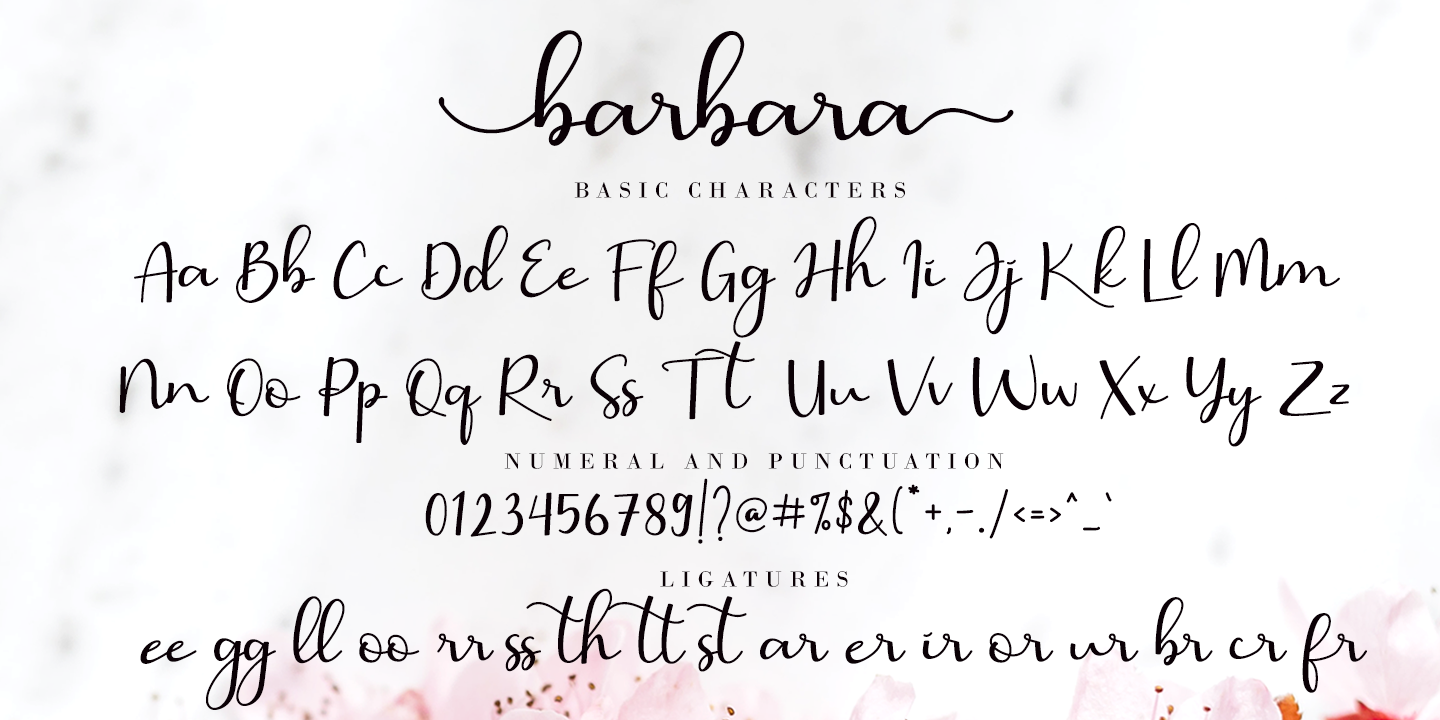 barbara
BASIC CHARACTERS
Aa Bb Cc Dd Ee Ff Gg Hh Ii Jj Kk Ll Mm
Nn Oo Pp Qq Rr Ss Tt Uu Vv Ww Xx Yy Zz
NUMERAL AND PUNCTUATION
0123456789!?@#%$&(*+,-./<=>^_`
LIGATURES
ee gg ll oo rr ss th tt st ar er ir or ur br cr fr